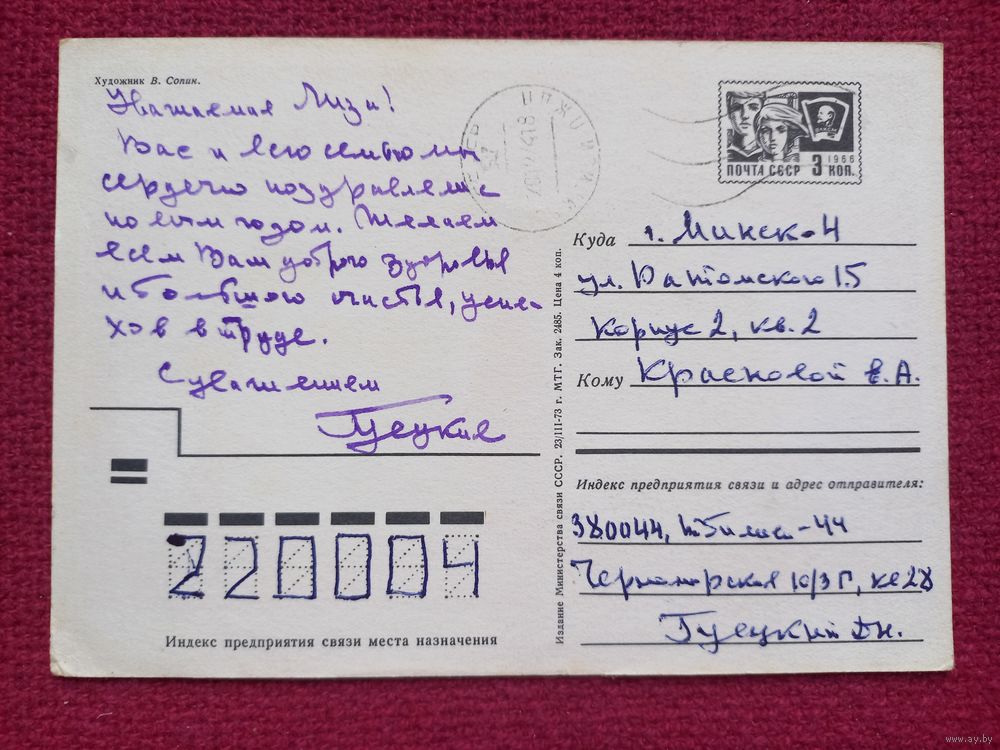 Художник В. Сопин.
Уважаемая Лиза!
Вас и всю семью мы
сердечно поздравляем с
новым годом. Желаем
всем Вам доброго здоровья
и большого счастья, успе-
хов в труде.
С уважением
Гуецкие
220004
Индекс предприятия связи места назначения
Издание Министерства связи СССР. 23/III-73 г. МТГ. Зак. 2485. Цена 4 коп.
ПОЧТА СССР 3 КОП.
1966
ВЛКСМ
Куда г. Минск-4
ул. Ратомского 15
корпус 2, кв. 2
Кому Красновой Е. А.
Индекс предприятия связи и адрес отправителя:
380044, Тбилиси-44
Черноморская 10/3 Г, кв 28
Гуецкий
www.ay.by